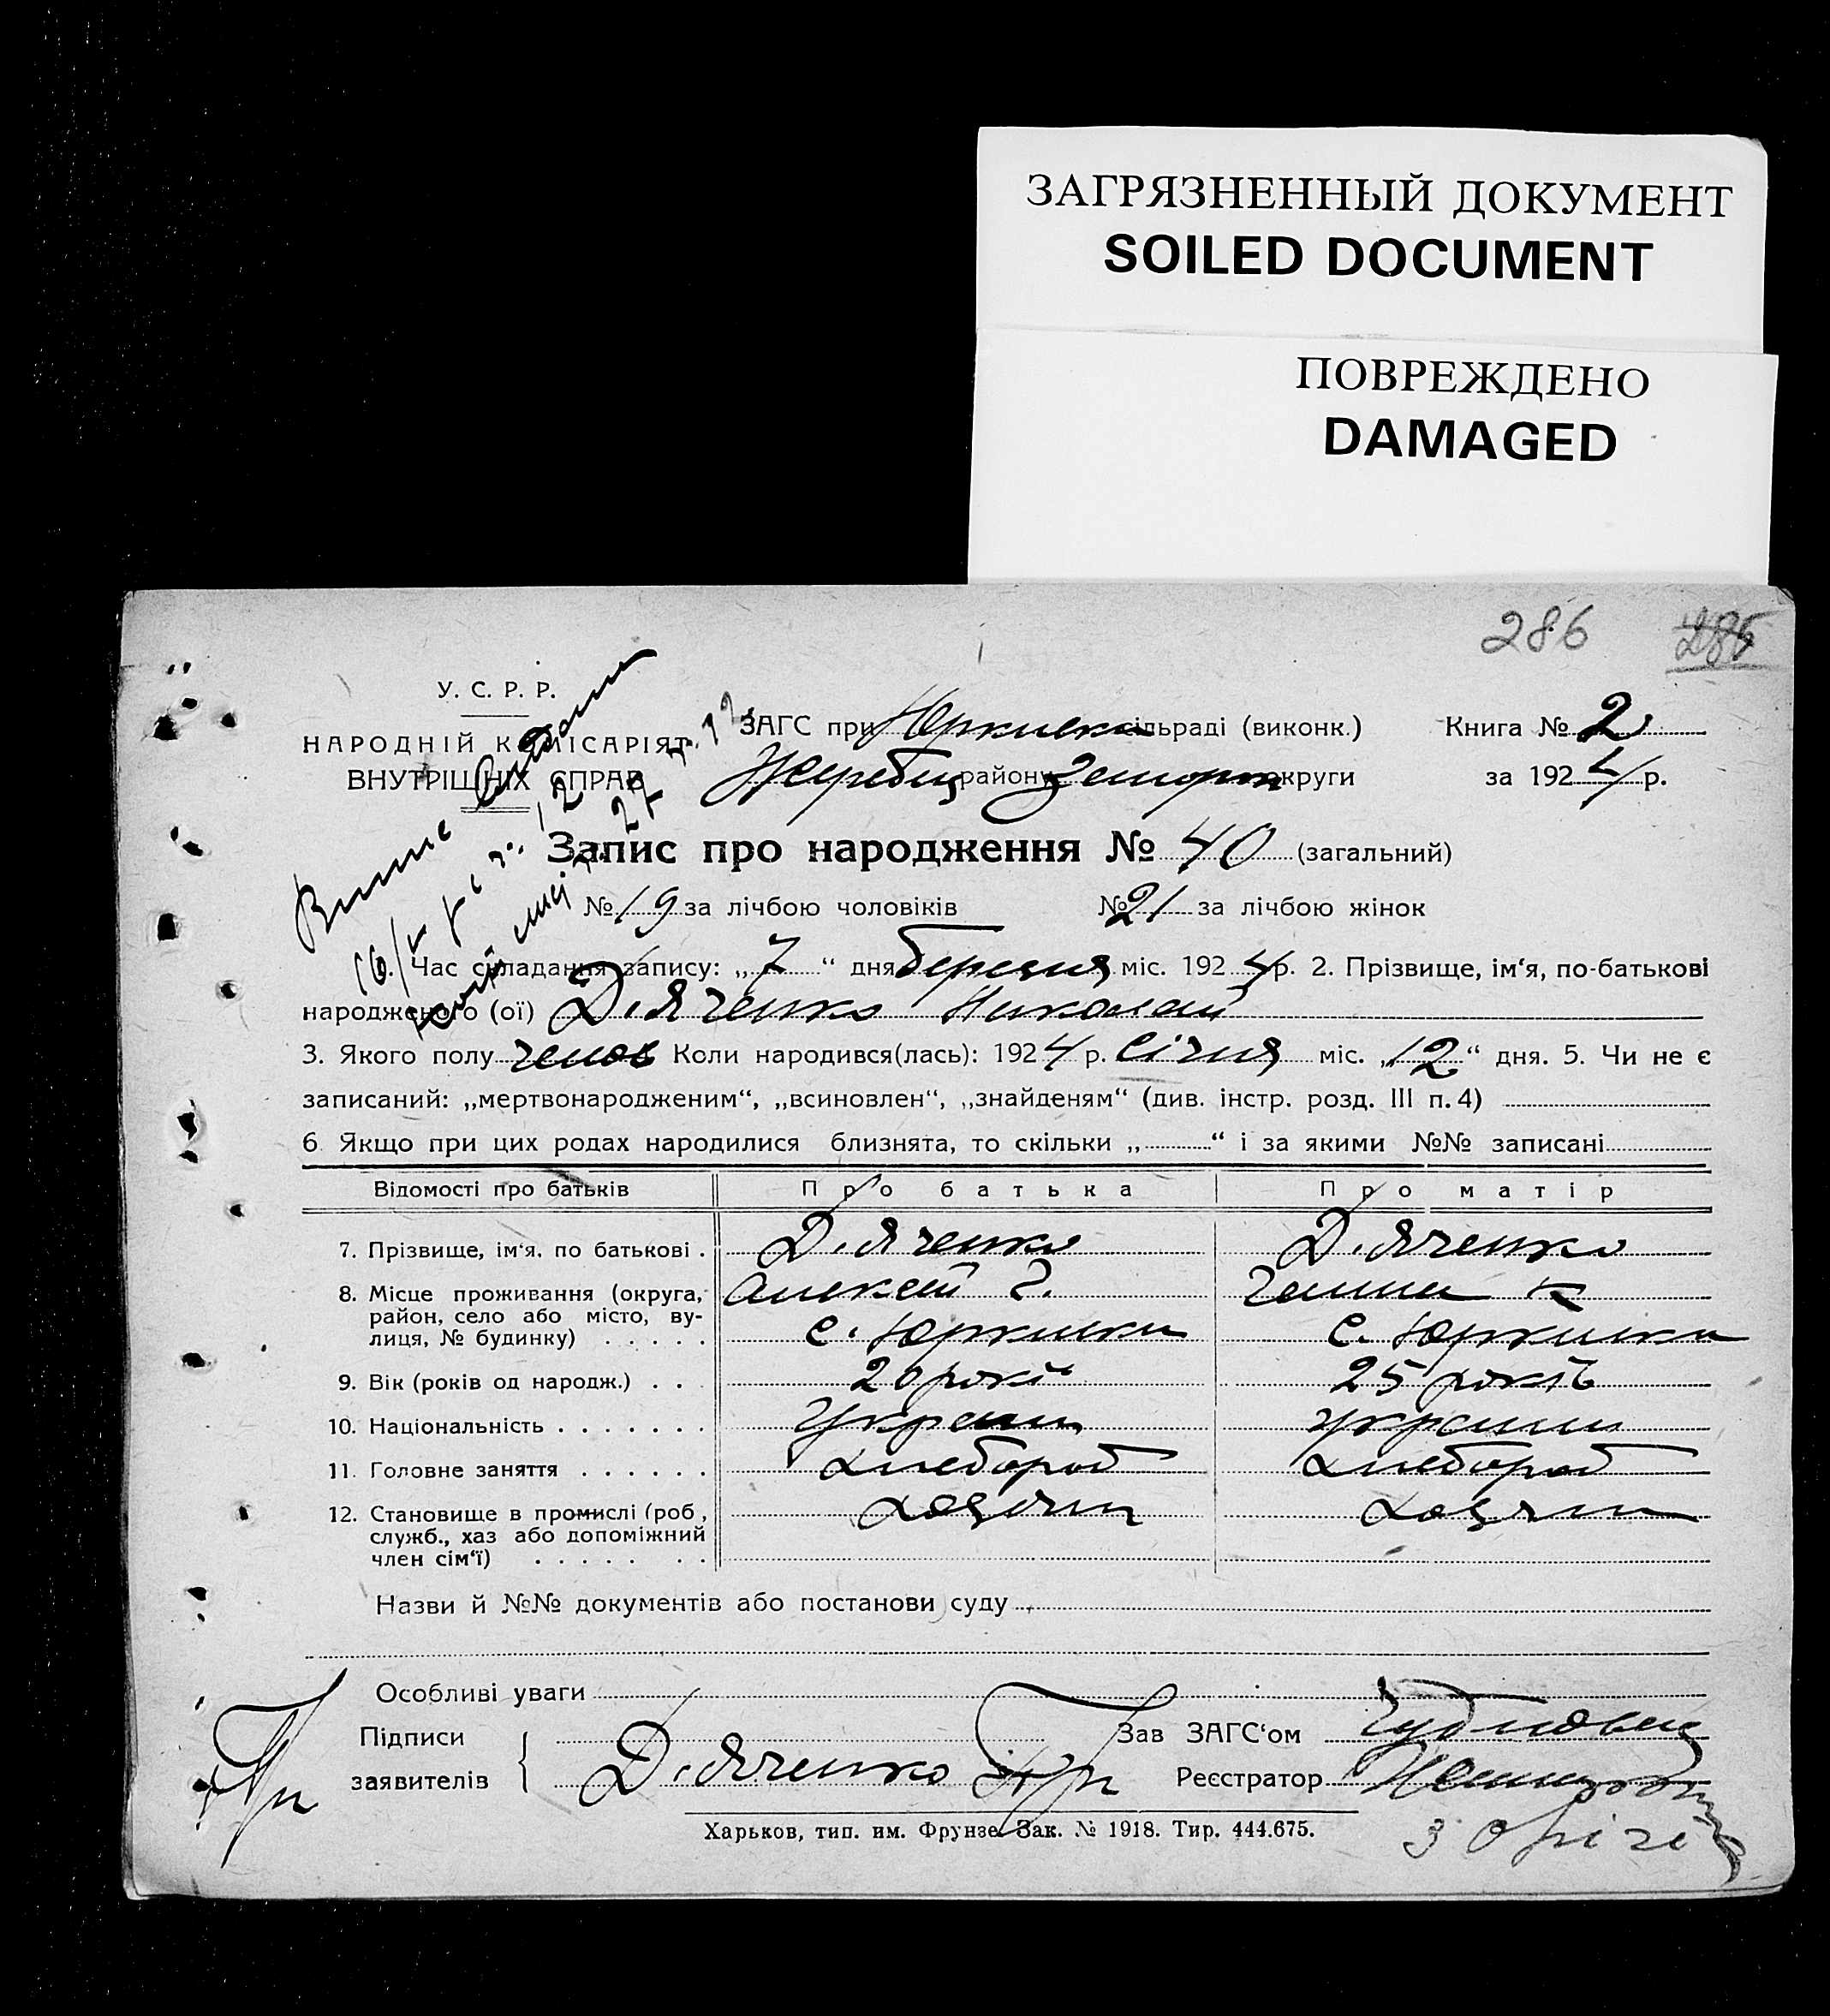 ЗАГРЯЗНЕННЫЙ ДОКУМЕНТ
SOILED DOCUMENT
ПОВРЕЖДЕНО
DAMAGED
286 286
У. С. Р. Р.
НАРОДНІЙ КОМІСАРІЯТ
ВНУТРІШНІХ СПРАВ
ЗАГС при Юркивка сільраді (виконк.) Книга № 2
Жеребец району Запорж округи за 1924 р.
Запис про народження № 40 (загальний)
№ 19 за лічбою чоловіків № 21 за лічбою жінок
1. Час складання запису: „7“ дня березня міс. 1924 р. 2. Прізвище, ім‘я, по-батькові
народженого (ої) Д.яченко Николай
3. Якого полу челов Коли народився(лась): 1924 р. січня міс. „12“ дня. 5. Чи не є
записаний: „мертвонародженим“, „всиновлен“, „знайденям“ (див. інстр. розд. III п. 4)
6 Якщо при цих родах народилися близнята, то скільки „ “ і за якими №№ записані
Відомості про батьків Про батька Про матір
7. Прізвище, ім‘я, по батькові . Д.яченко Д.яченко
8. Місце проживання (округа, Алексей Г. Ганна К
район, село або місто, ву- с. Юркивка с. Юркивка
лиця, № будинку) . . . . .
9. Вік (років од народж.) . . 20 рокі 25 років
10. Національність . . . . . . . Украин украин
11. Головне заняття . . . . . . хлебороб хлебороб
12. Становище в промислі (роб, хазяин хазяин
служб., хаз або допоміжний
член сім‘ї) . . . . . . .
Назви й №№ документів або постанови суду
Особливі уваги
Підписи Зав ЗАГС‘ом
заявителів Д.яченко Реєстратор
Харьков, тип. им. Фрунзе. Зак. № 1918. Тир. 444.675.